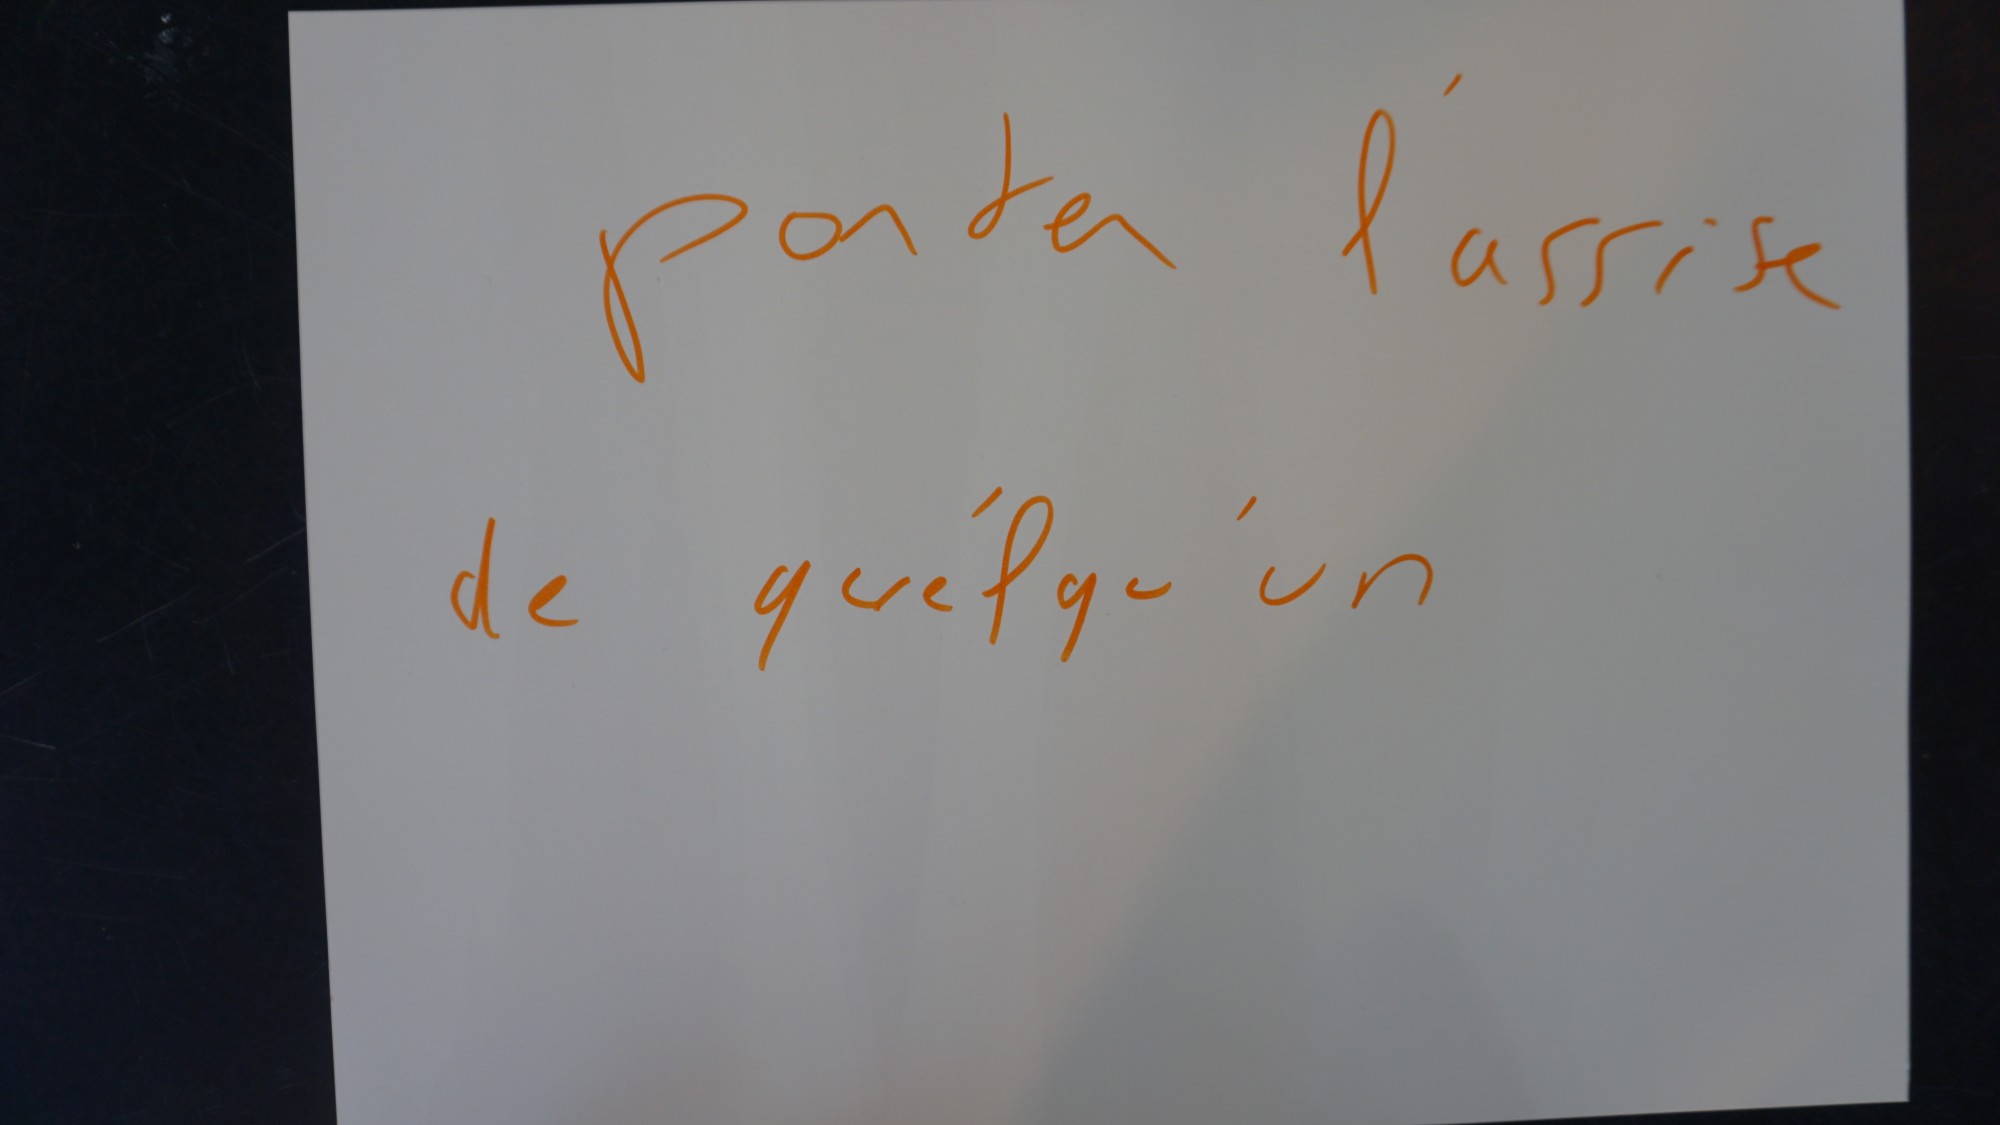 porter l'assise
de quélqu'un